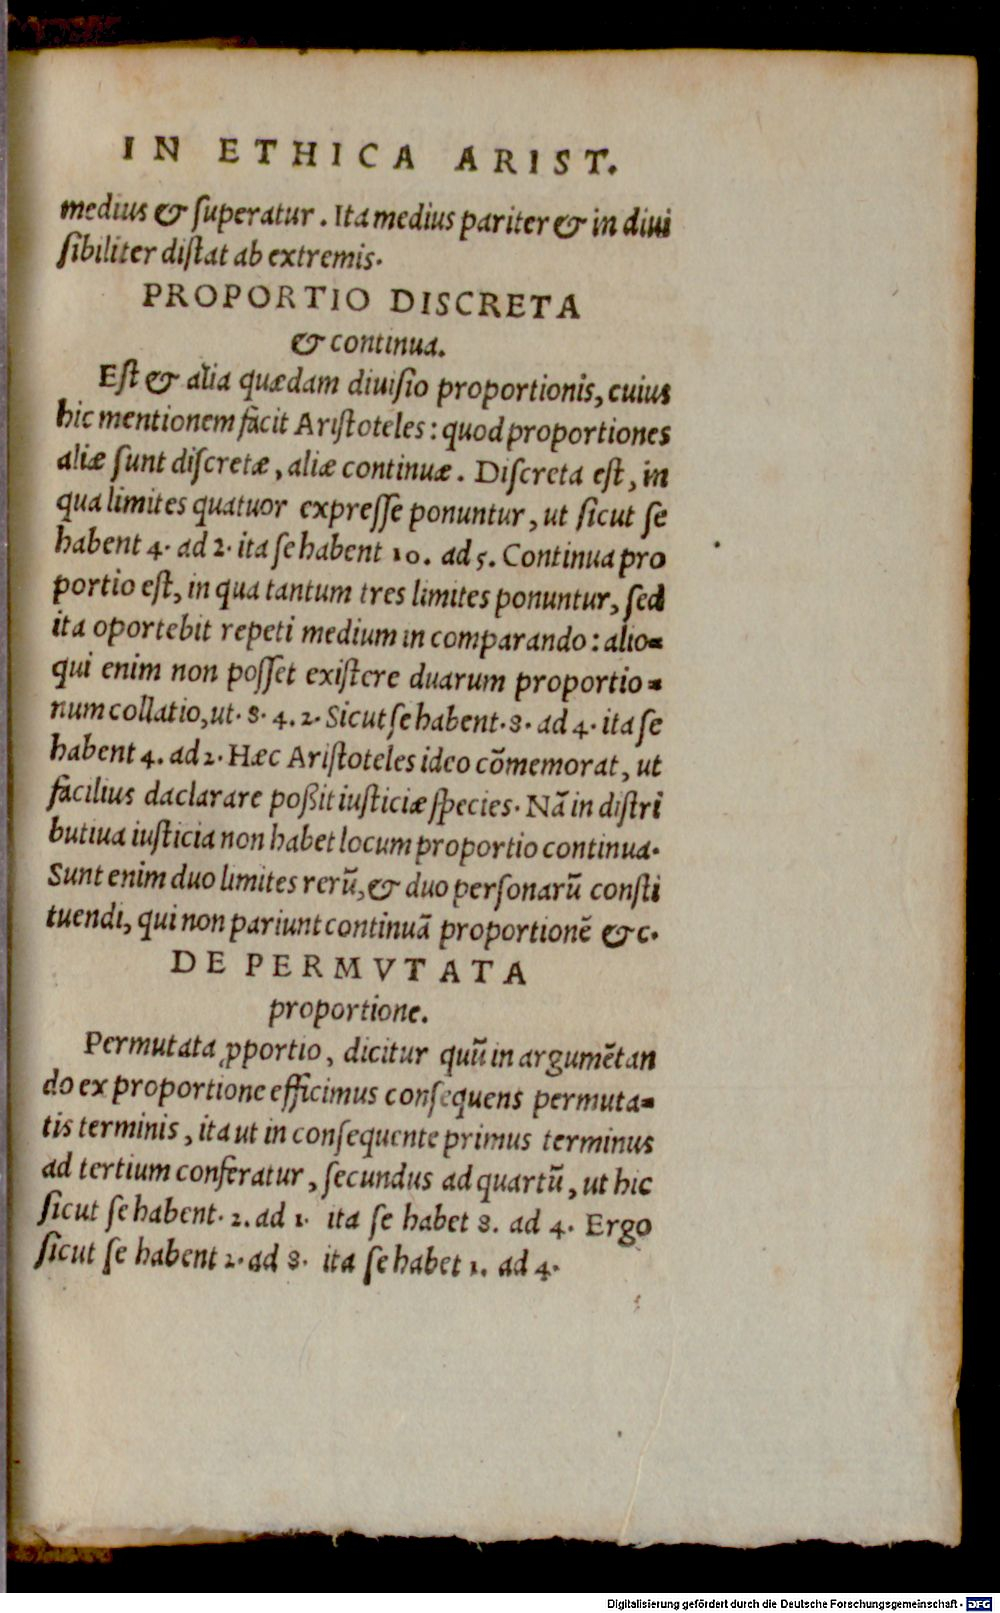 IN ETHICA ARIST.
medius & ſuperatur. Ita medius pariter & in diui
ſibiliter diſtat ab extremis.
PROPORTIO DISCRETA
& continua.
Eſt & alia quædam diuiſio proportionis, cuius
hic mentionem facit Ariſtoteles: quod proportiones
aliæ ſunt diſcretæ, aliæ continuæ. Diſcreta eſt, in
qua limites quatuor expreſſe ponuntur, ut ſicut ſe
habent 4. ad 2. ita ſe habent 10. ad 5. Continua pro
portio eſt, in qua tantum tres limites ponuntur, ſed
ita oportebit repeti medium in comparando: alio=
qui enim non poſſet exiſtere duarum proportio=
num collatio, ut. 8. 4. 2. Sicut ſe habent. 8. ad 4. ita ſe
habent 4. ad 2. Hæc Ariſtoteles ideo cōmemorat, ut
facilius daclarare poßit iuſticiæ ſpecies. Nā in diſtri
butiua iuſticia non habet locum proportio continua.
Sunt enim duo limites rerū, & duo perſonarū conſti
tuendi, qui non pariunt continuā proportionē &c.
DE PERMVTATA
proportione.
Permutata ꝓportio, dicitur quū in argumētan
do ex proportione efficimus conſequens permuta=
tis terminis, ita ut in conſequente primus terminus
ad tertium conferatur, ſecundus ad quartū, ut hic
ſicut ſe habent. 2. ad 1. ita ſe habet 8. ad 4. Ergo
ſicut ſe habent 2. ad 8. ita ſe habet 1. ad 4.
Digitalisierung gefördert durch die Deutsche Forschungsgemeinschaft - DFG